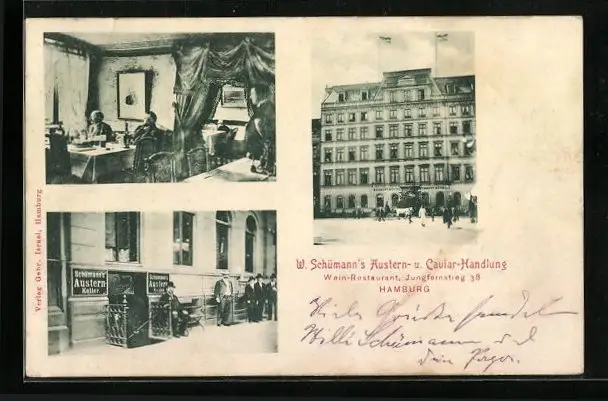 Schümann's
Austern
Keller
Schümann's
Austern
Keller
Verlag Gebr. Israel, Hamburg
W. Schümann's Austern- u. Caviar-Handlung
Wein-Restaurant, Jungfernstieg 38
HAMBURG
Viele Grüsse sendet
Willi Schümann